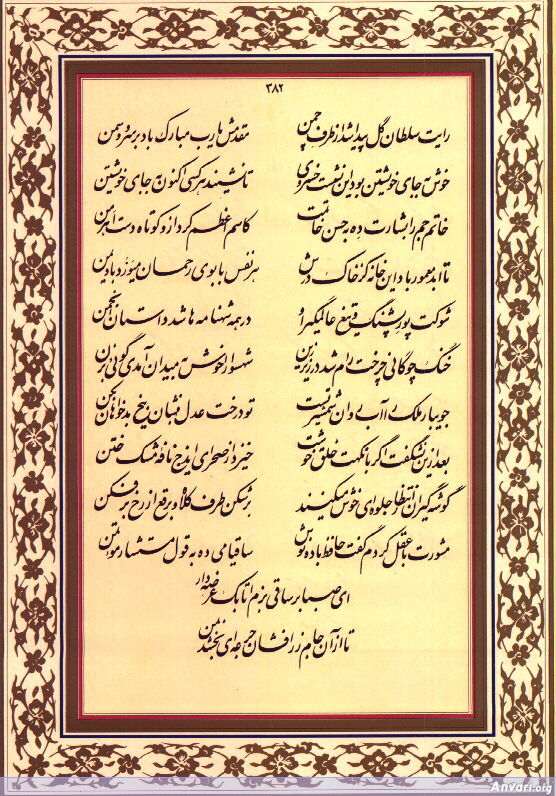 ۳۸۲
رایت سلطان گل پیدا شد از طرف چمن مقدمش یارب مبارک باد بر سرو و سمن
خوش به جای خویشتن بود این نشست خسروی تا نشیند هر کسی اکنون به جای خویشتن
خاتم جم را بشارت ده به حسن خاتمت کاسم اعظم کرد از او کوتاه دست اهرمن
تا ابد معمور باد این خانه کز خاک درش هر نفس با بوی رحمان میوزد باد یمن
شوکت پور پشنگ و تیغ عالمگیر او در همه شهنامه ها شد داستان انجمن
خنگ چوگانی چرخت رام شد در زیر زین شهسوارا خوش به میدان آمدی گوئی بزن
جویبار ملک را آب روان شمشیر تست تو درخت عدل بنشان بیخ بدخواهان بکن
بعد ازین نشکفت اگر با نکهت خلق خوشت خیزد از صحرای ایذج نافه مشک ختن
گوشه گیران انتظار جلوه ای خوش میکنند برشکن طرف کلاه و برقع از رخ برفکن
مشورت با عقل کردم گفت حافظ باده نوش ساقیا می ده به قول مستشار مؤتمن
ای صبا بر ساقی بزم اتابک عرضه دار
تا از آن جام زرافشان جرعه ای بخشد به من
Anvari.org